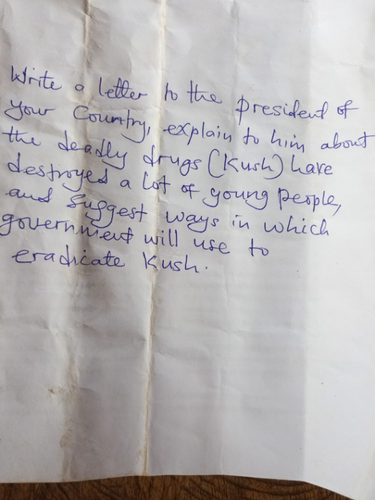 Write a letter to the president of
your Country, explain to him about
the deadly drugs (Kush) have
destroyed a lot of young people,
and suggest ways in which
government will use to
eradicate Kush.